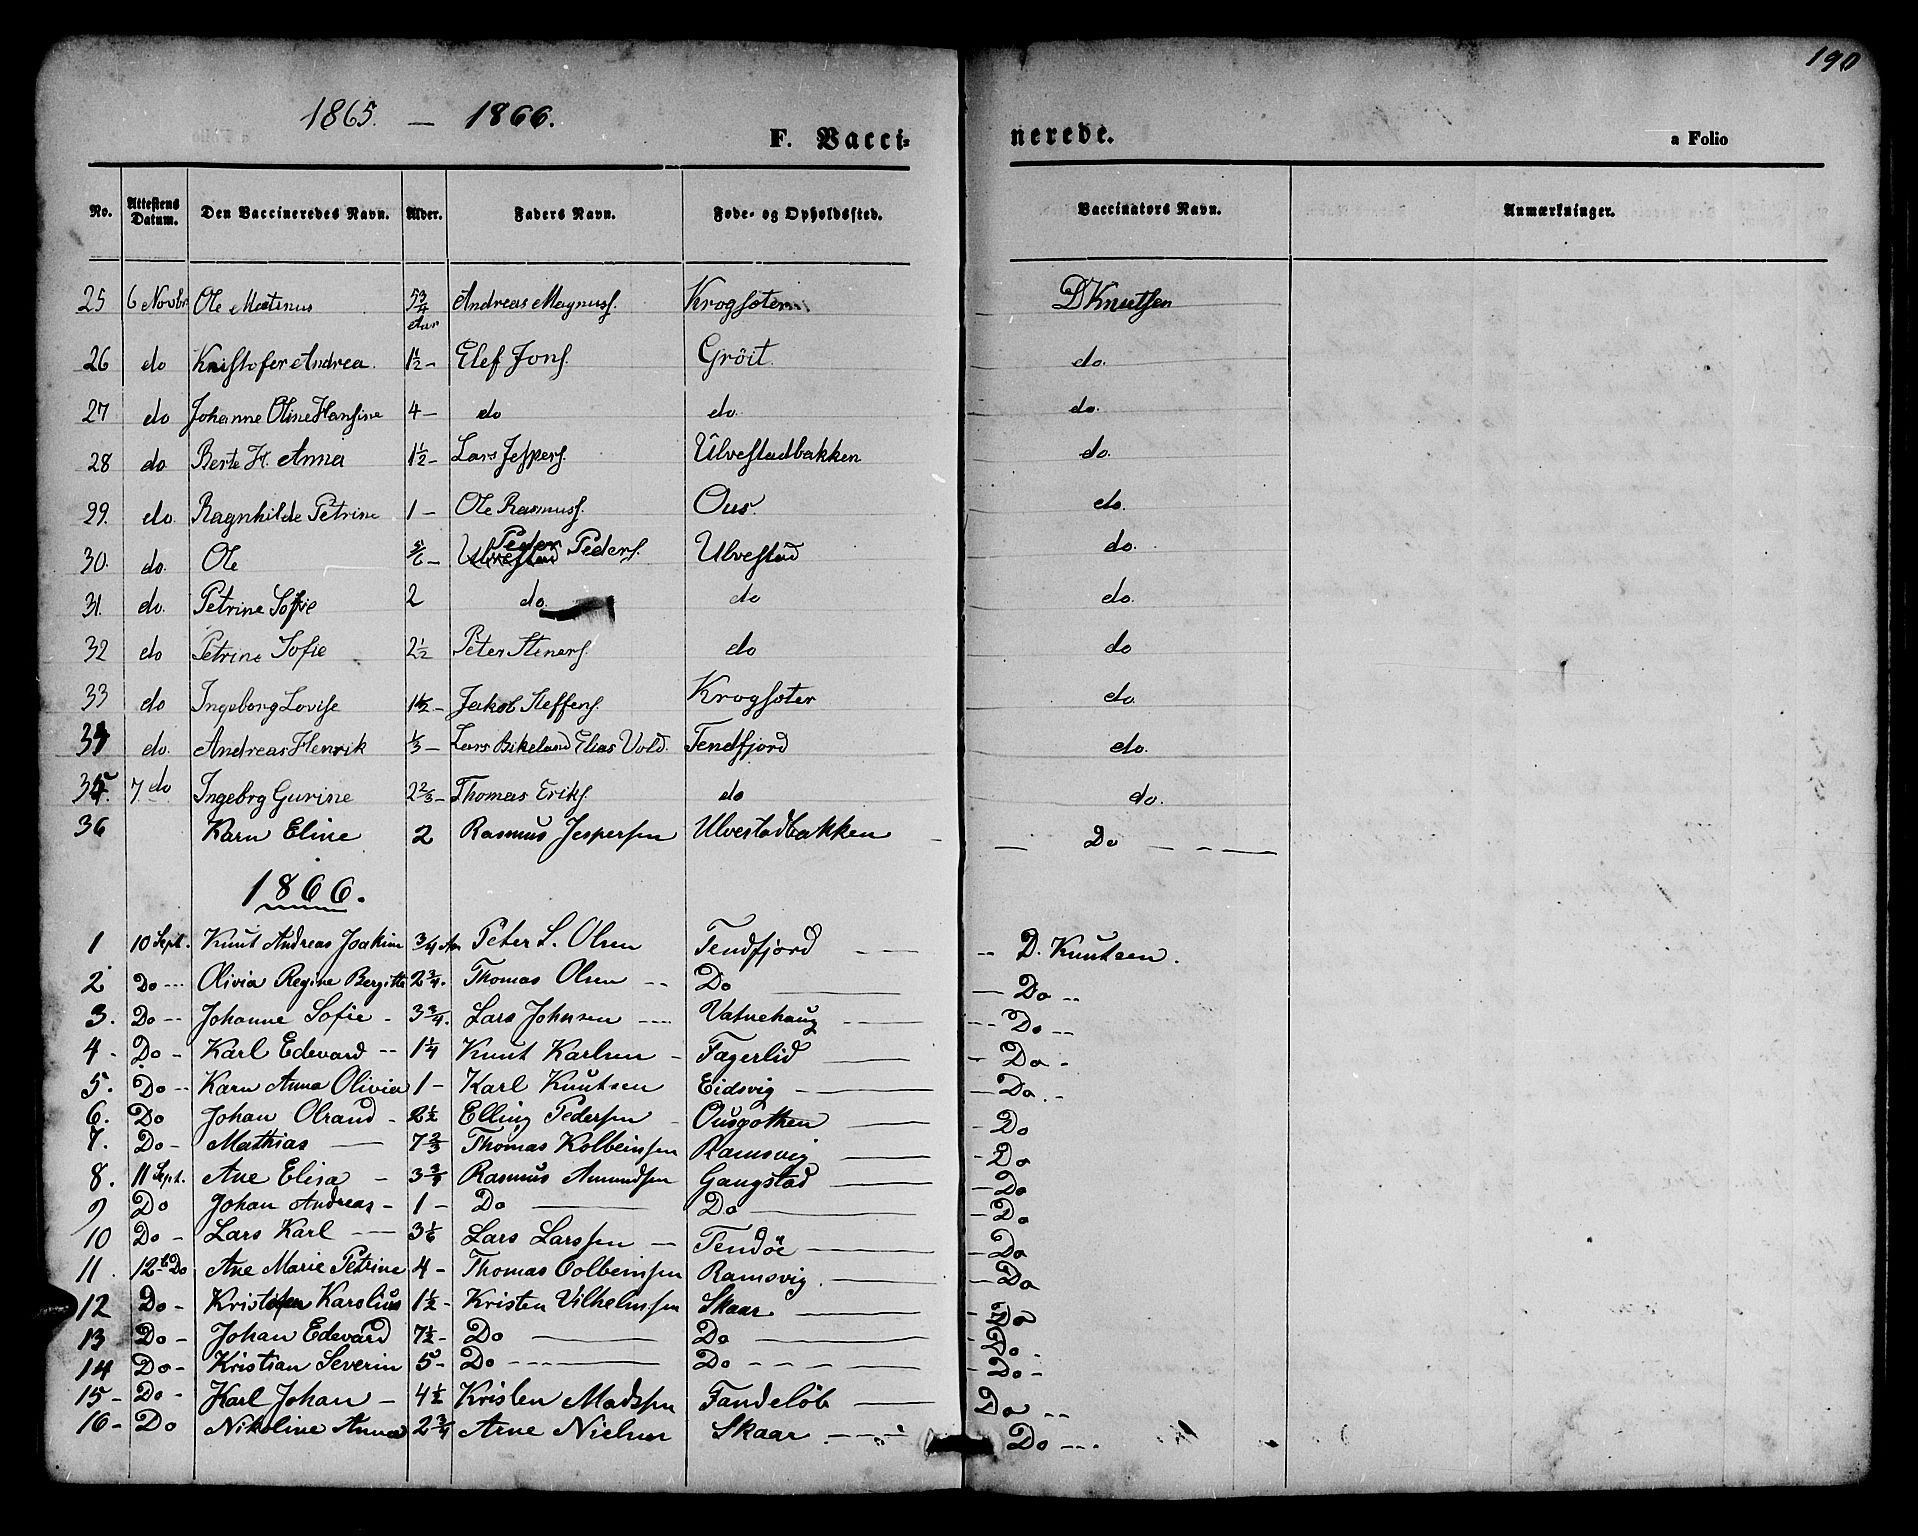 190
1865. — 1866.
F. Vacci-nerede. a Folio
No. Attestens Datum. Den Vaccineredes Navn. Alder. Faders Navn. Føde- og Opholdssted. Vaccinators Navn. Anmærkninger.
25 6 Novbr Ole Matinus 5 3/4 Aar Andreas Magnuss. Krogsæter D Knutsen
26 do Kristofer Andrea. 1 1/2 - Elef Jons. Gröit. do.
27 do Johanne Oline Hansine 4 - do do. do.
28 do Berte H. Anna 1 1/2 - Lars Jespers. Ulvestadbakken do.
29. do. Ragnhilde Petrine 1 - Ole Rasmuss. Ous. do.
30. do. Ole 5/6 - Peder Peders. Ulvestad do.
31. do. Petrine Sofie 2 do. do do.
32 do Petrine Sofie 2 1/2 Peter Steners. do do
33 do Ingeborg Lovise 1 1/2 - Jakob Steffens. Krogsæter do.
34 do. Andreas Henrik 1/3 - Lars Bikeland Elias Vold. Tendfjord do.
35. 7 do Ingebrg Gurine 2 2/3 - Thomas Eriks. do do.
36 Karn Eline 2 Rasmus Jespersen Ulvestadbakken — Do — - - —
1866.
1 10 Sept. Knut Andreas Joakim 3/4 Aar Peter L. Olsen Tendfjord — -- D. Knutsen.
2 Do --- Olivia Regine Bergitte 2 3/4. Thomas Olsen -- Do — — Do --
3. Do -- Johanne Sofie - 3 3/4. Lars Johnsen --- Vatnehaug — -- Do --
4 - Do - Karl Edevard -- 1 1/4 Knut Karlsen - Fagerlid — - Do -
5. Do -- Karn Anna Olivia 1 - Karl Knutsen Eidsvig — — Do. -
6. Do Johan Olraud - 2 1/2 Elling Pedersen - Ousgothen — - Do
7. Do - Mathias — 7 2/3 Thomas Kolbeinsen Ramsvig — - Do
8. 11 Sept. Ane Elisa - 3 3/4 Rasmus Amundsen Gangstad — — Do
9 Do Johan Andreas - 1 - Do — Do — - Do
10 Do - Lars Karl — 3 1/6 Lars Larssen — Tendöe — - Do
11. 12te Do Ane Marie Petrine 4 - Thomas Colbeinsen Ramsvig. — - Do
12 Do - Karolius 1 1/2 - Kristen Vilhelmssen Skaar — - Do
13 Do - Johan Edevard 7 1/2 - Do — Do — - Do -
14 Do - Kristian Severin 5 - Do --- — Do - - - - - Do -
15 - Do - Karl Johan - 4 1/2 Kristen Madssen Fandelöb — Do --
16 - Do Nikoline Anna 2 3/4 Arne Nielsen Skaar. — Do ---